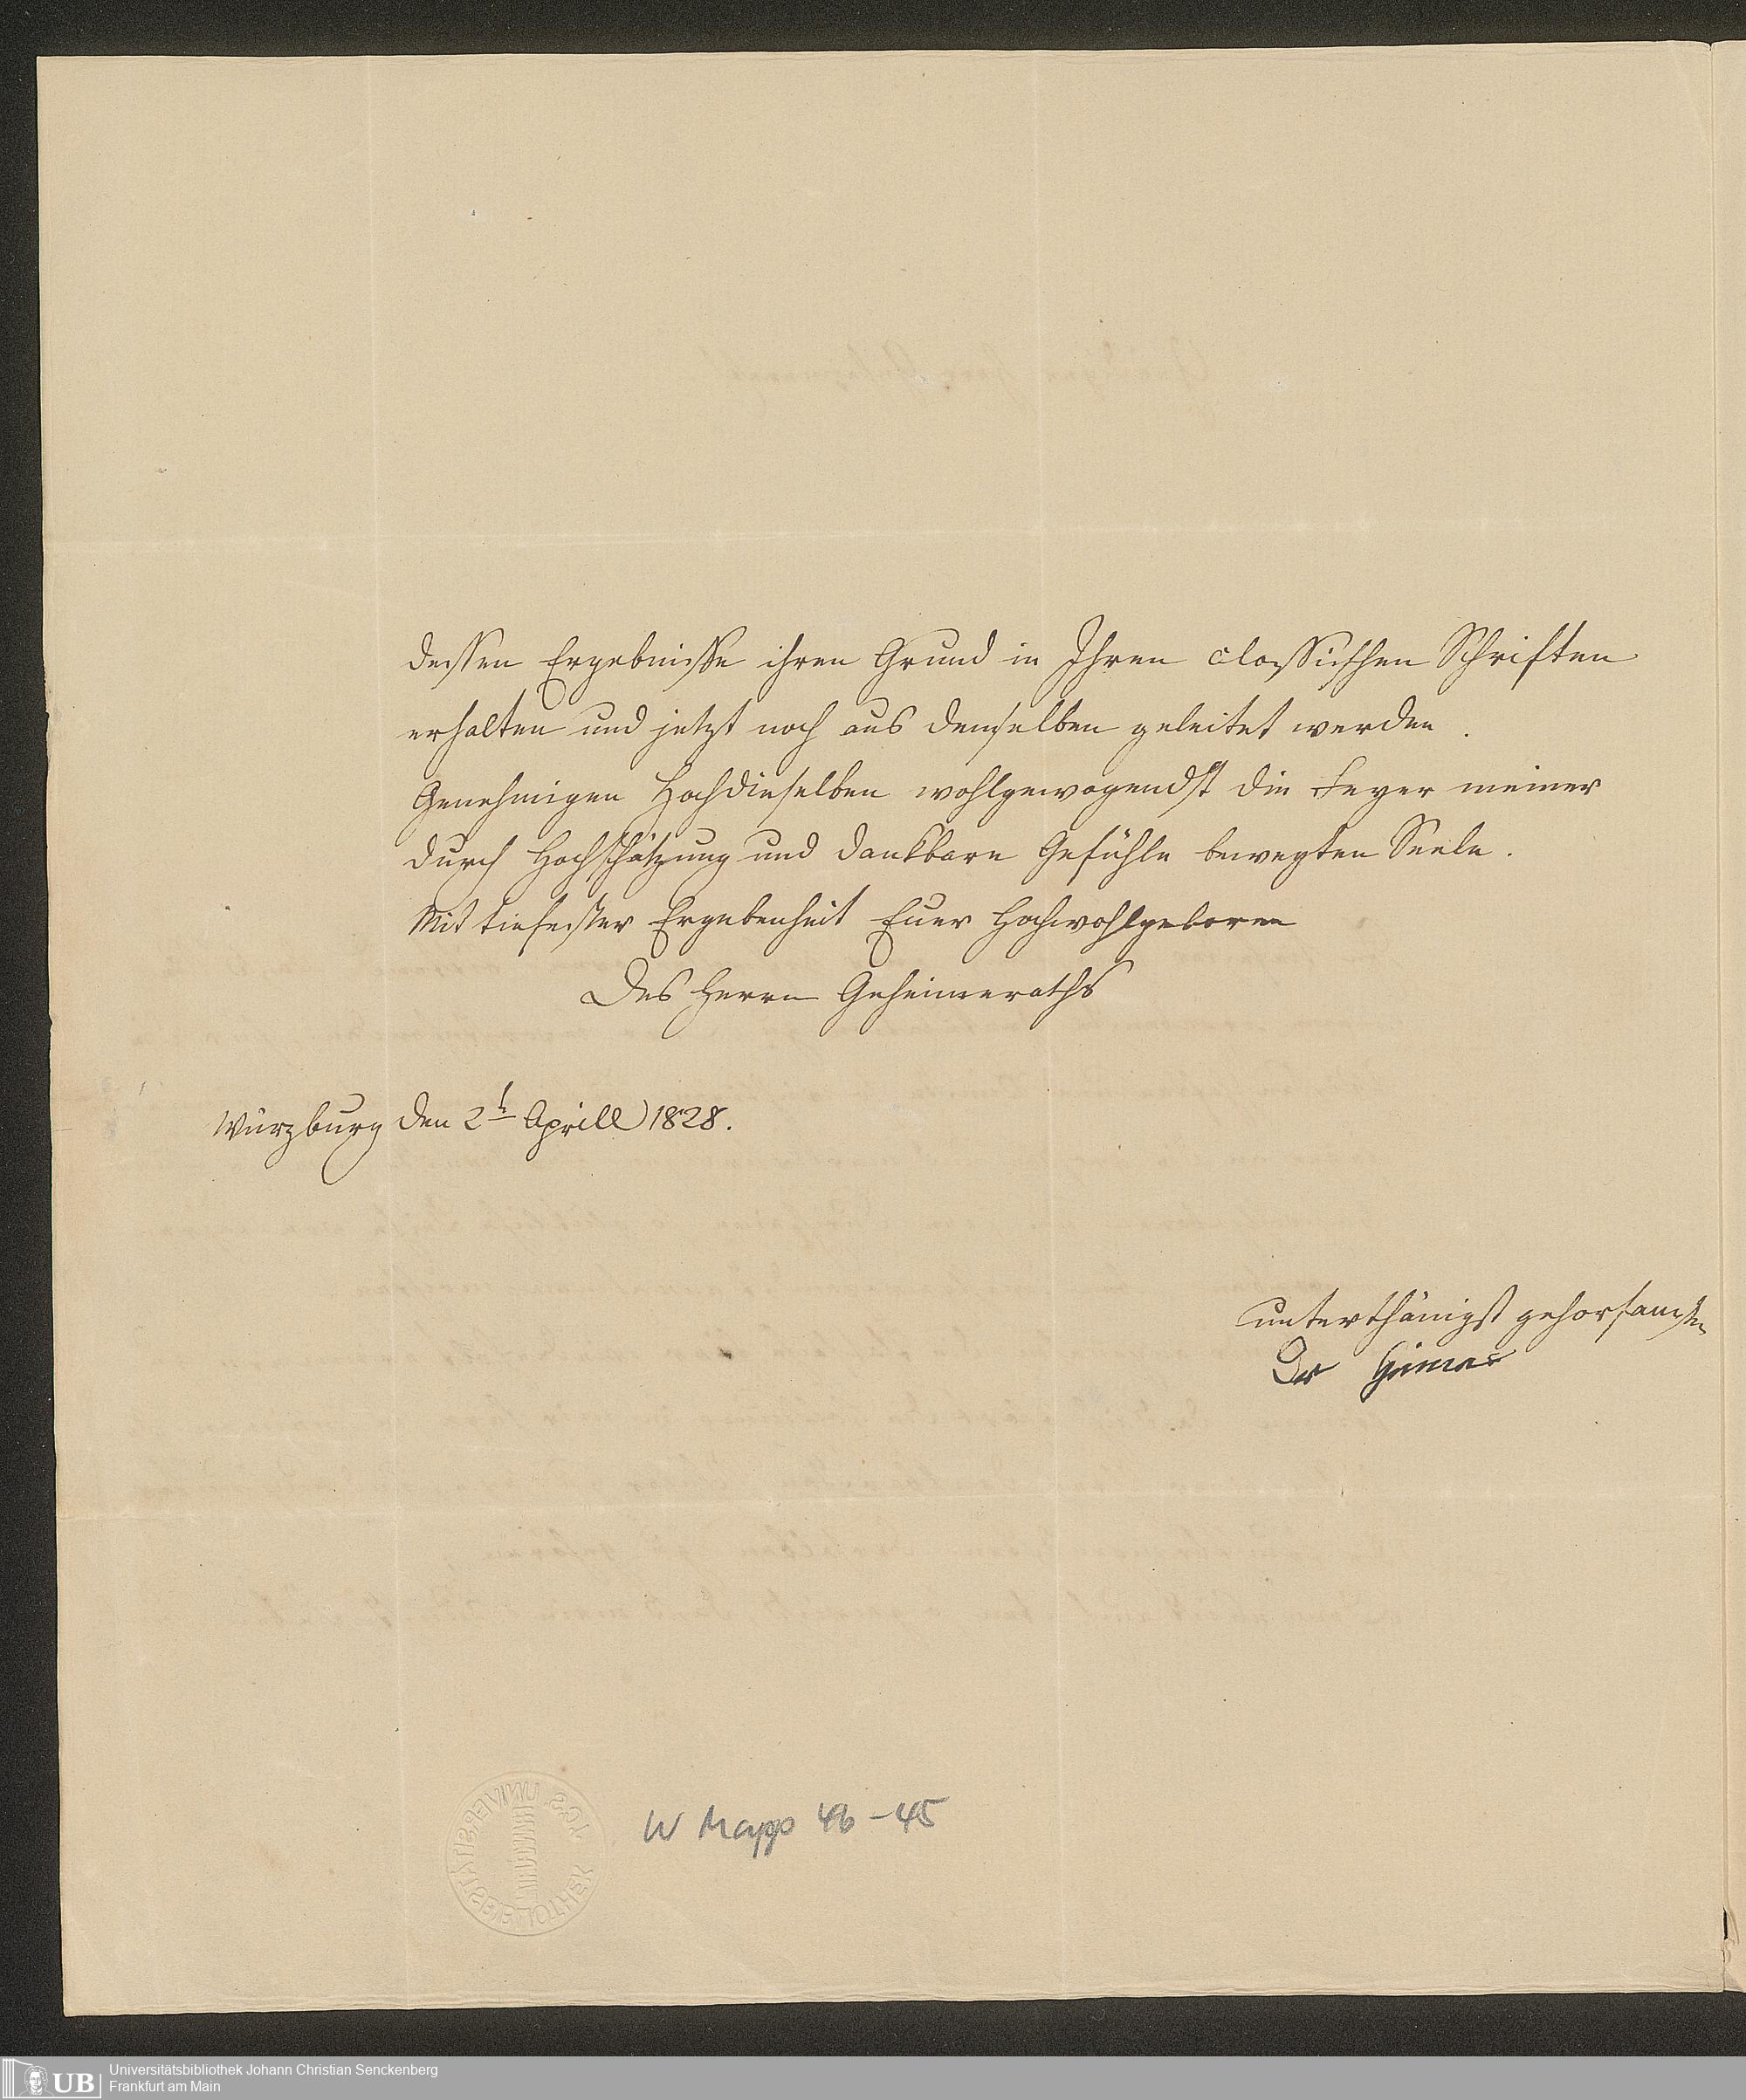 dessen Ergebnisse ihren Grund in Ihren classischen Schriften
erhalten und jetzt noch aus denselben geleitet werden.
Genehmigen Hochdieselben wohlgewogendst die Feyer meiner
durch Hochschätzung und dankbare Gefühle bewegten Seele.
Mit tiefester Ergebenheit Euer Hochwohlgeboren
Des Herrn Geheimeraths
Würzburg den 2t Aprill 1828.
unterthänigst gehorsamster
Dr
W Mapp 46-45
UNIVERSITÄTSBIBLIOTHEK
UB
Universitätsbibliothek Johann Christian Senckenberg
Frankfurt am Main